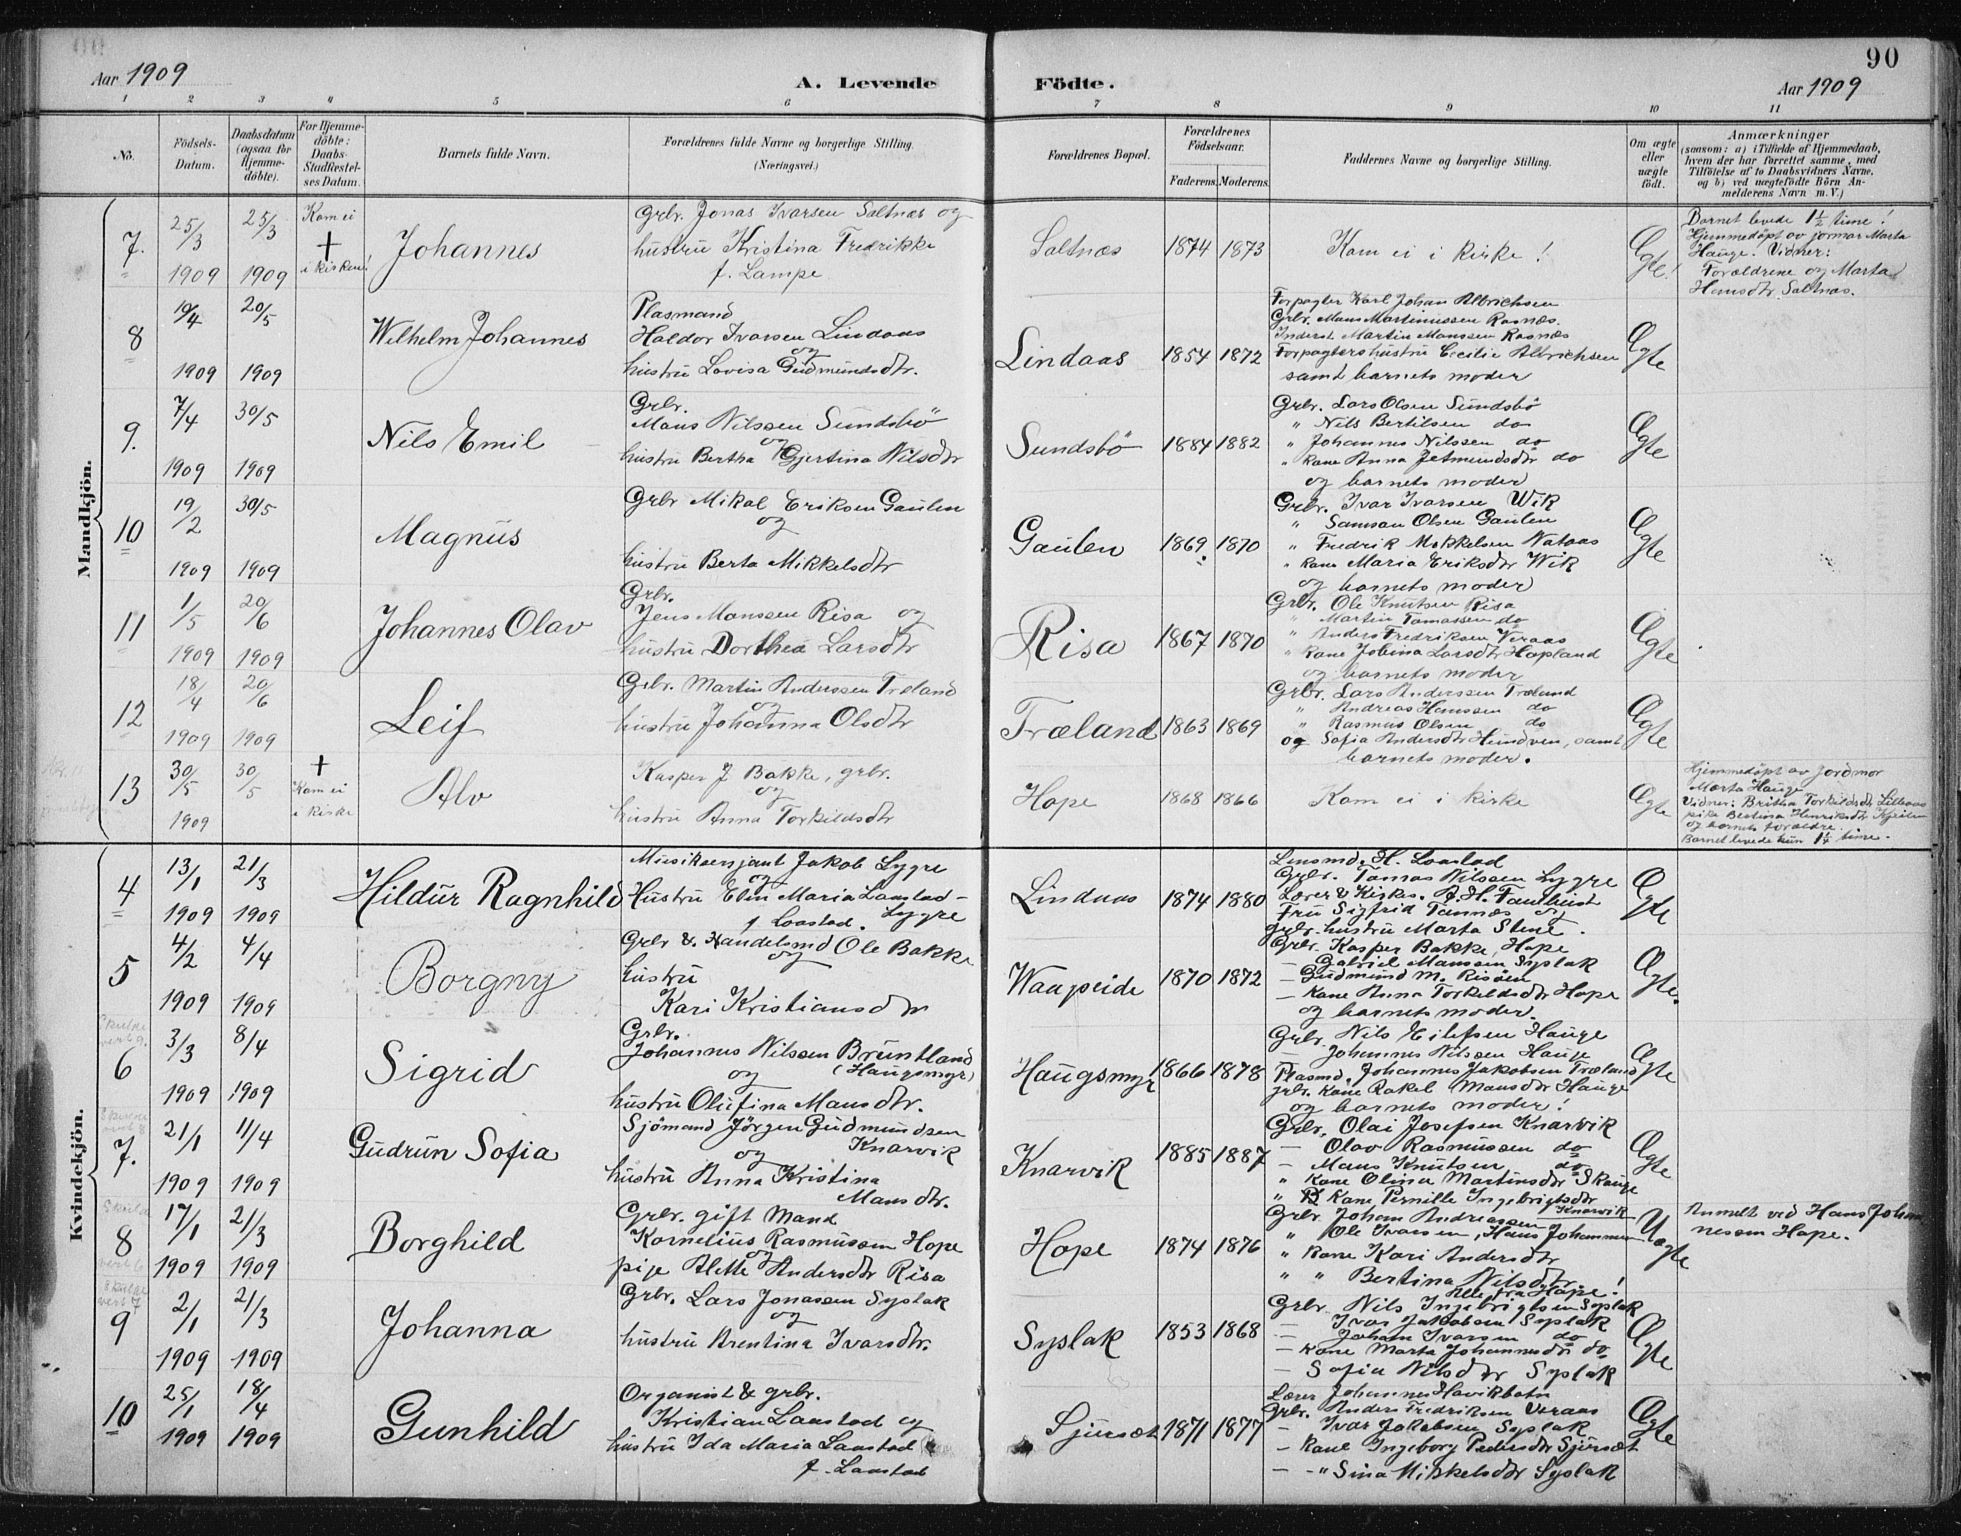 Aar 1909
A. Levende Födte.
90
Aar 1909
1 2 3 4 5 6 7 8 9 10 11
No.
Födsels-Datum.
Daabsdatum (ogsaa for Hjemme-döbte).
For Hjemme-döbte: Daabs-Stadfæstel-ses Datum.
Barnets fulde Navn.
Forældrenes fulde Navne og borgerlige Stilling. (Næringsvei.)
Forældrenes Bopæl.
Forældrenes Födselsaar.
Faderens. Moderens.
Faddernes Navne og borgerlige Stilling.
Om ægte eller uægte födt.
Anmærkninger
(saasom: a) i Tilfælde af Hjemmedaab, hvem der har forrettet samme, med Tilföielse af to Daabsvidners Navne, og b) ved uægtefödte Börn An-melderens Navn m. V.)
Mandkjön.
7. 25/3 1909 25/3 1909 Kom ei + i kirken!
Johannes
Grbr. Jonas Ivarsen Saltnæs og
hustru Kristina Fredrikke
f. Lampe
Saltnæs 1874 1873
Kom ei i kirke!
Ægte!
Barnet levede 1½ time!
Hjemmedöpt av jormor Marta
Hauge. Vidner:
Forældrene og Marta
Hansdtr. Saltnæs.
8 19/4 1909 20/5 1909
Wilhelm Johannes
Plasmand
Haldor Ivarsen Lindaas
og
hustru Lovisa Gudmundsdtr.
Lindaas 1854 1872
Forpagter Karl Johan Albrichsen
Grbr. Mans Martinussen Rosnæs.
Inderst. Martin Manssen Rosnæs
Forpagtershustru Cecilie Albrichsen
samt barnets moder
Ægte
9. 7/4 1909 30/5 1909
Nils Emil
Grbr.
Mans Nilssen Sundsbö
og
hustru Bertha Gjertina Nilsdtr
Sundsbö 1884 1882
Grbr. Lars Olsen Sundsbö
" Nils Bertilsen do
" Johannes Nilssen do
" kone Anna Jetmundsdtr do
og barnets moder
Ægte
10 19/2 1909 30/5 1909
Magnus
Grbr Mikal Eriksen Gaulen
og
hustru Berta Mikkelsdtr
Gaulen 1869. 1870
Grbr. Ivar Ivarsen Wik
" Samson Olsen Gaulen
" Fredrik Mikkelsen Nataas
" kone Maria Eriksdtr Wik
og barnets moder
Ægte
11 1/5 1909 20/6 1909
Johannes Olav
Grbr.
Jens Monssen Risa og
hustru Dorthea Larsdtr
Risa 1867 1870
Grbr. Ole Knutsen Risa
" Martin Tomassen do
" Anders Fredriksen Veraas
" kone Jobina Larsdtr Hopland
og barnets moder
Ægte
12 18/4 1909 20/6 1909
Leif
Grbr. Martin Anderssen Træland
og
hustru Johanna Olsdtr
Træland 1863 1869
Grbr. Lars Anderssen Træland
" Andreas Hanssen do
" Rasmus Olsen do
og Sofia Andersdtr Hundven, samt
barnets moder.
Ægte
13 30/5 1909 30/5 + Kom ei i kirke
Alv
Kasper J Bakke, grbr.
og
hustru Anna Torkildsdtr
Hope 1868 1866
Kom ei i kirke
Ægte
Hjemmedöpt av Jordmor
Marta Hauge
Vidner: Britha Torkildsdtr Lilleaas
pike Bertina Henriksdtr
og barnets forældre.
Barnet levede kun 1¼ time.
Kvindekjön.
4 13/1 1909 21/3 1909
Hildur Ragnhild
Musiksersjant Jakob Lygre
og
Hustru Elin Maria Laastad-
Lygre
f. Laastad.
Lindaas 1874 1880
Lensmd. H. Laastad
Grbr. Tomas Nilssen Lygre
Lærer & Kirkes. A. H. Fanebust
Fru Sigfrid Tannæs og
grbr. hustru Marta Stene.
Ægte
5 4/2 1909 4/4 1909
Borgny
Grbr & Handelsmd Ole Bakke
og
hustru
Kari Kristiansdtr
Waageide 1870 1872
Grbr. Kasper Bakke, Hope
- Gabriel Manssen Syslak
- Gudmund M. Risöen
- kone Anna Torkildsdtr Hope
og barnets moder.
Ægte.
6 3/3 1909 8/4 1909
Sigrid
Grbr.
Johannes Nilssen Bruntland
(Haugsmyr)
og
hustru Olufina Mansdtr.
Haugsmyr 1866 1878
Grbr. Nils Eilefsen Hauge
- Johannes Nilssen Hauge
Plasmd. Johannes Jakobsen Træland
grbr. kone Rakel Mansdtr Hauge
og barnets moder!
Ægte
7. 21/1 1909 11/4 1909
Gudrun Sofia
Sjömand Jörgen Gudmundsen
Knarvik
og
hustru Anna Kristina
Mansdtr.
Knarvik 1885 1887
Grbr. Olai Josefsen Knarvik
- Olav Rasmussen do
- Mans Knutsen do
" Kone Olina Martinsdtr Skauge
" Kone Pernille Ingebrigtsdtr
Knarvik
Ægte
8 17/1 1909 21/3 1909
Borghild
Grbr. gift Mand
Kornelius Rasmussen Hope
og
pige Alette Andersdtr Risa
Hope 1874 1876
Grbr Johan Andreassen
" Ole Ivarsen, Hans Johannesen
" kone Kari Andersdtr
" " Bertina Nilsdtr.
Alle fra Hope!
Uægte
Anmelt ved Hans Johan
nesen Hope.
9 2/1 1909 21/3 1909
Johanna
Grbr. Lars Jonassen Syslak
og
hustru Arentina Ivarsdtr.
Syslak 1853 1868
Grbr Nils Ingebrigtsen Syslak
- Ivar Jakobsen Syslak
- Johan Ivarsen do
- kone Marta Johannesdtr do
- Sofia Nilsdtr Syslak
Ægte
10 25/1 1909 18/4 1909
Gunhild
Organist & grbr.
Kristian Laastad og
hustru Ida Maria Laastad
f. Laastad
Sjursæt 1871 1877
Lærer Johannes Havikbotn
Grbr. Anders Fredriksen Veraas
- Ivar Jakobsen Syslak
- Kone Ingeborg Pedersdtr Sjursæt
- - " Sina Mikkelsdtr Syslak
Ægte